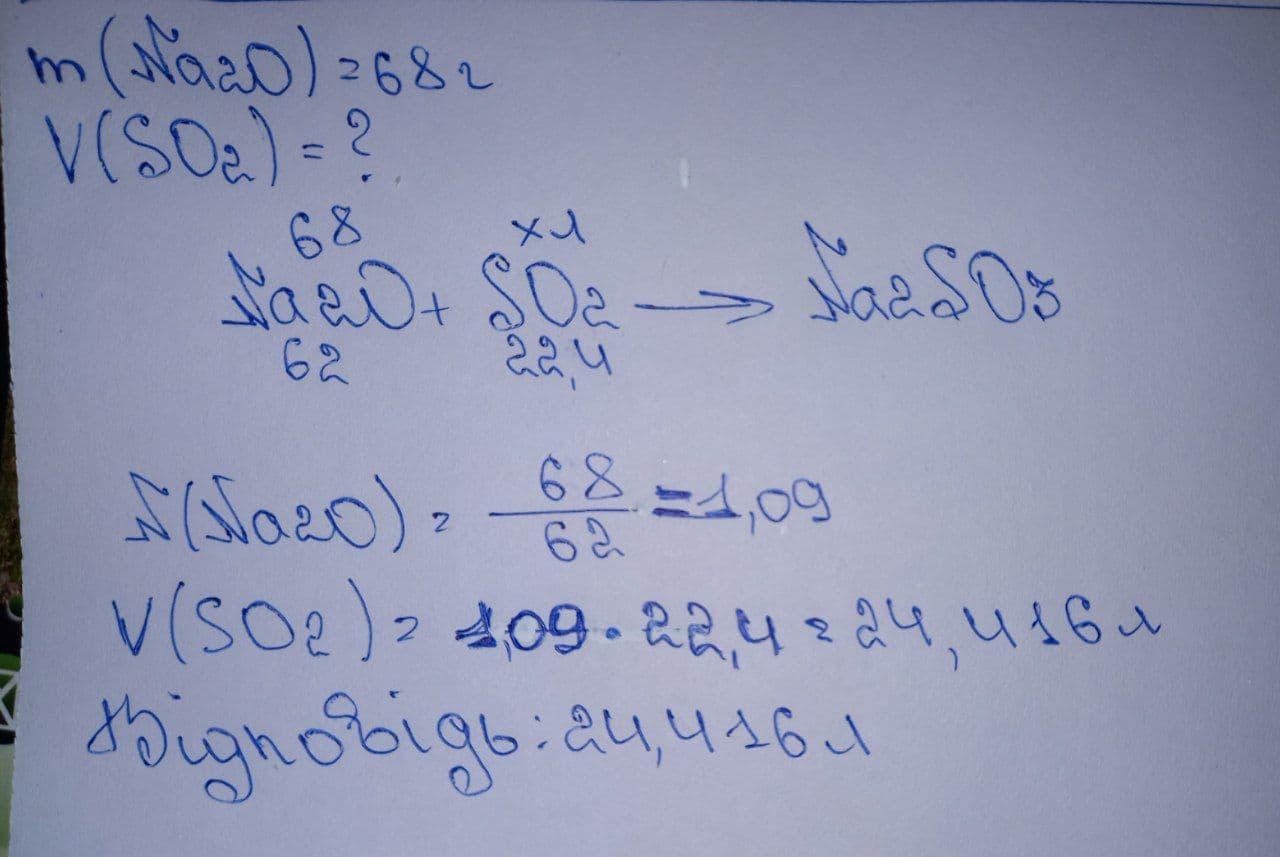 m(Na2O)=68г
V(SO2)=?
68 xл
Na2O + SO2 → Na2SO3
62 22,4
N(Na2O) = 68/62 = 1,09
V(SO2) = 1,09 · 22,4 = 24,416 л
Відповідь: 24,416 л